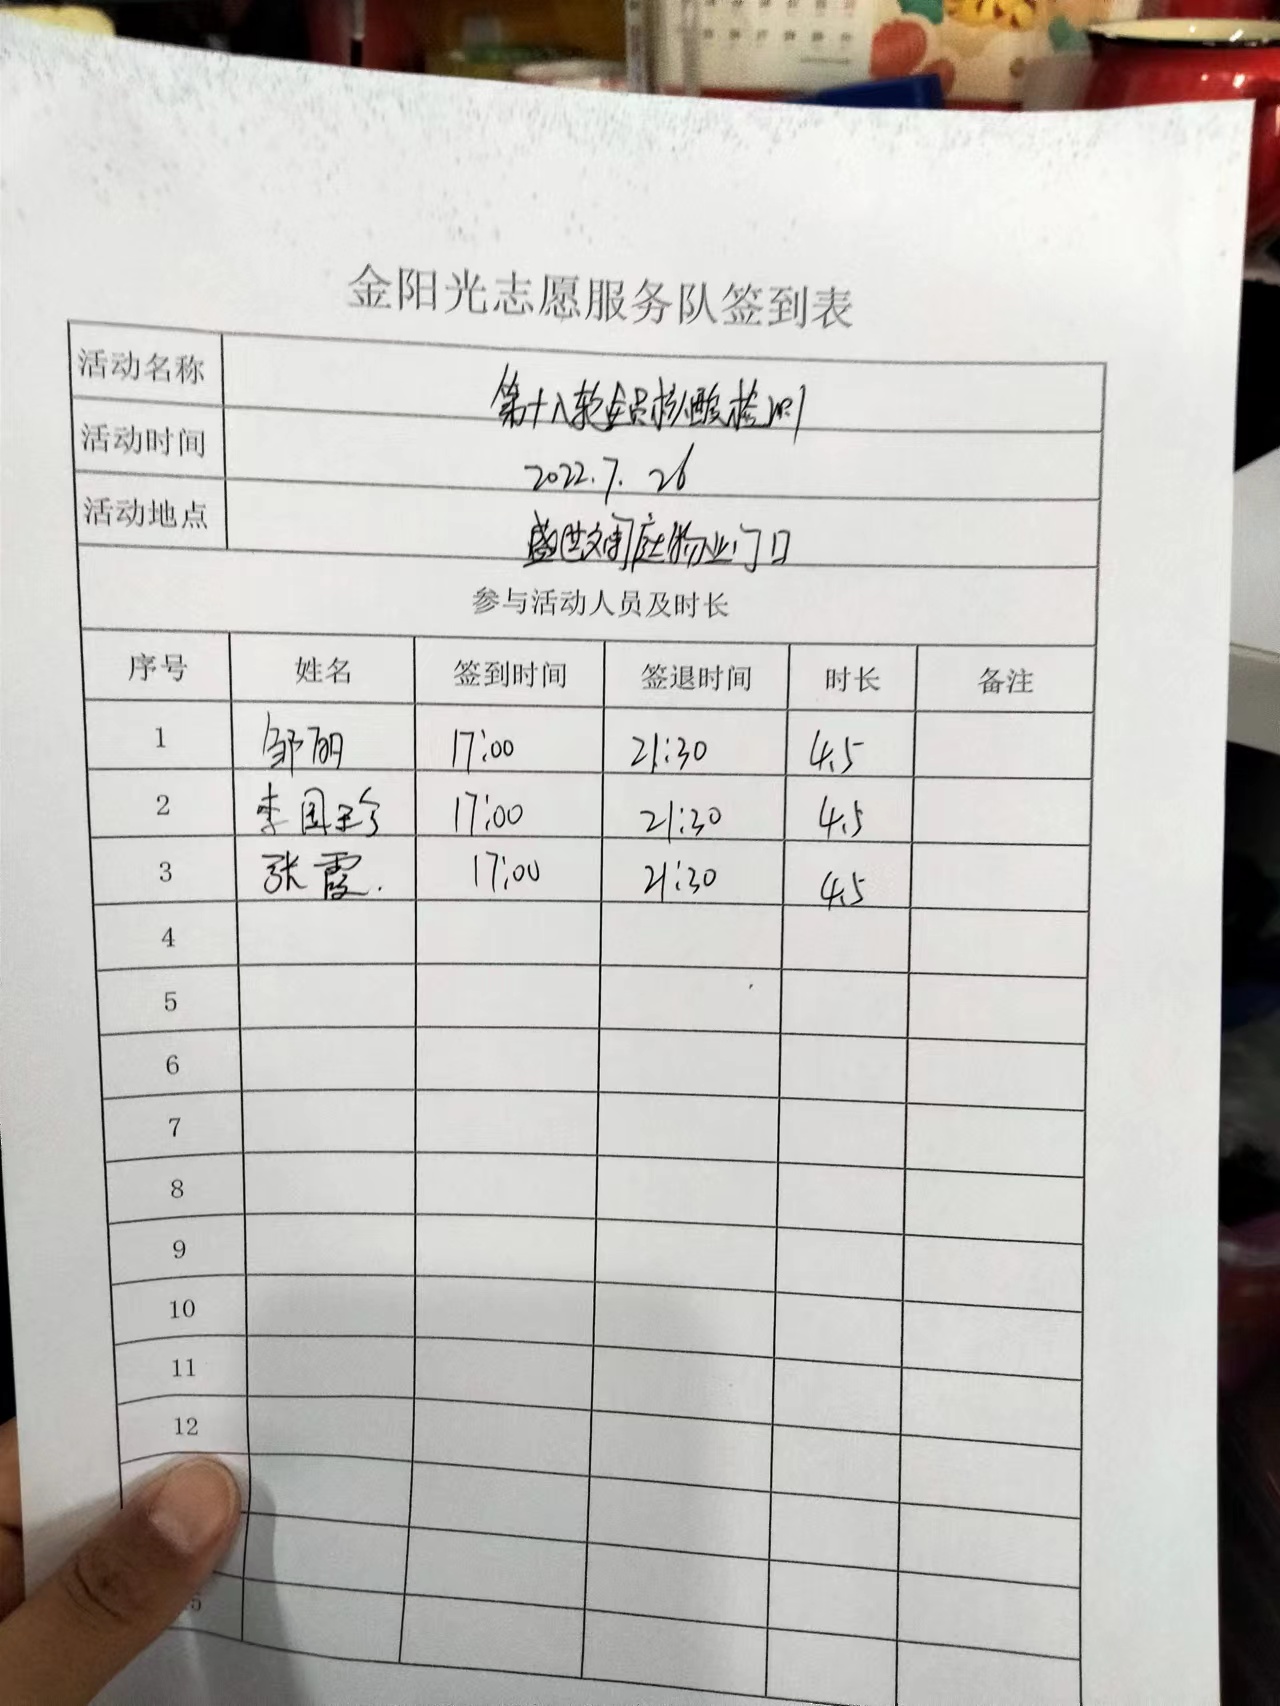 金阳光志愿服务队签到表
活动名称 第十八轮全员核酸检测
活动时间 2022.7.26
活动地点 盛世文庭物业门口
参与活动人员及时长
序号 姓名 签到时间 签退时间 时长 备注
1 邹丽 17:00 21:30 4.5
2 李国珍 17:00 21:30 4.5
3 张霞. 17:00 21:30 4.5
4
5
6
7
8
9
10
11
12
5